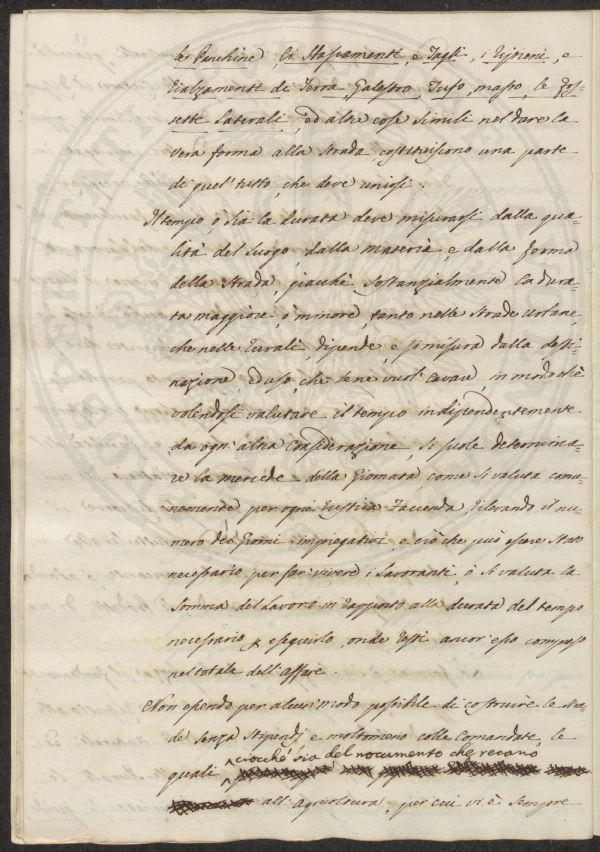 le Panchine, li Stassamenti, e Tagli, i Ripieni, e
Rialzamenti di Terra, Galestro, Tufo, masso, le Fos=
sette Laterali, ed altre cose simili nel dare la
vera forma alla Strada, costituiscono una parte
di quel tutto, che deve unirsi.
Il tempo, o sia la durata deve misurarsi dalla qua=
lità del Luogo, dalla materia, e dalla forma
della Strada, giacchè sostanzialmente la dura=
ta maggiore, o minore, tanto nelle Strade Urbane,
che nelle Rurali, dipende, e si misura dalla desti=
nazione ed uso, che se ne vuol cavare, in modo chè
volendosi valutare il tempo indipendentemente
da ogn' altra Considerazione, si suole determina=
re la mercede della Giornata, come si valuta comu=
nemente per ogni rustica Facenda rilevando il nu=
mero dei Giorni impiegativi, e ciò che può essere stato
necessario per far vivere i Lavoranti, o si valuta la
Somma dei Lavori in rapporto alla durata del tempo
necessario per eseguirlo, onde resti ancor esso compreso
nel totale dell' affare.
Non essendo per alcun modo possibile di costruire le stra=
de senza Stipendj, e moltomeno colle Comandate, le
ciocchè sia del nocumento che recano
quali
all' Agricoltura, per cui vi è sempre